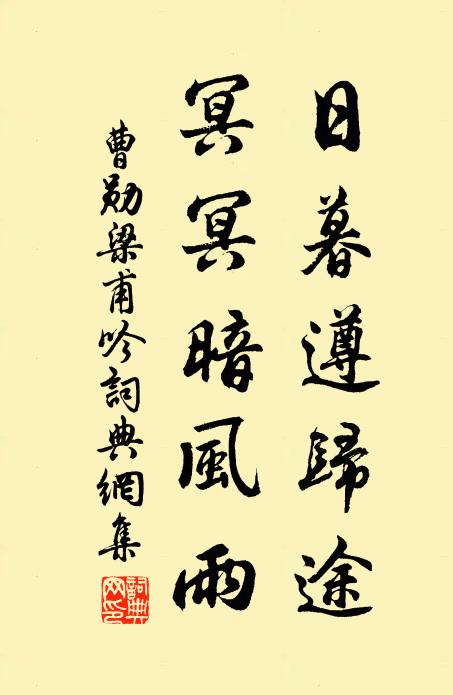 日暮遵歸途
冥冥暗風雨
曹勛梁甫吟詞典網集
詞典網印